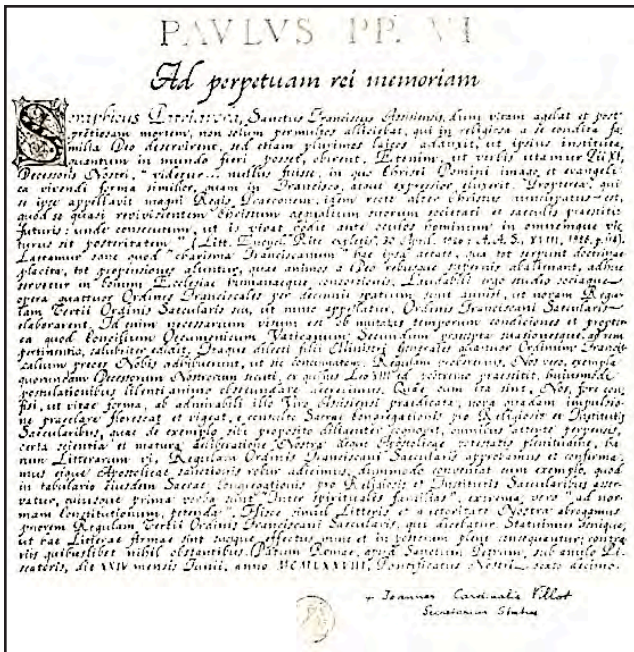 PAVLVS PP. VI
Ad perpetuam rei memoriam
Seraphicus Patriarcha, Sanctus Franciscus Assisiensis, dum vitam agebat et post
pretiosam mortem, non solum permultos alliciebat, qui in religiosa a se condita fa-
milia Deo deservirent, sed etiam plurimos laicos adduxit, ut ipsius instituta,
quantum in mundo fieri posset, obirent. Etenim, ut verbis utamur Pii XI,
Decessoris Nostri, "videtur... nullus fuisse, in quo Christi Domini imago et evangeli-
ca vivendi forma similior, quam in Francisco, atque expressior eluxerit. Propterea, qui
se ipse appellavit magni Regis Praeconem, idem recte alter Christus nuncupatus est,
quod se quasi redivivum Christum aequalium suorum societati et saeculis praestitit
futuris: unde consecutum, ut is vivat hodie ante oculos hominum in omnemque vic-
turus sit posteritatem" (Litt. Encycl. Rite expiatis, 30 April. 1926: A.A.S., XVIII, 1926, p. 154).
Laetamur sane quod "charisma Franciscanum" hac ipsa aetate, qua tot serpunt doctrinae
placita, tot propensiones aluntur, quae animos a Deo rebusque supernis abalienant, adhuc
servetur in bonum Ecclesiae humanaeque consortionis. Laudabili ergo studio sociaque
opera quattuor Ordines Franciscales per decennii spatium sunt annisi, ut novam Regu-
lam Tertii Ordinis Saecularis seu, ut nunc appellatur, Ordinis Franciscani Saecularis
elaborarent. Id enim necessarium visum est ob mutatas temporum condiciones et propter-
ea quod Concilium Oecumenicum Vaticanum Secundum praecepta suasionesque, ad rem
pertinentia, salubriter edidit. Itaque dilecti filii Ministri Generales quattuor Ordinum Francis-
calium preces Nobis adhibuerunt, ut sic concinnatam Regulam probaremus. Nos vero, exempla
quorundam Decessorum Nostrorum secuti, ex quibus Leo XIII id postremo praestitit, huiusmodi
postulationibus libenti animo obsecundare decrevimus. Quae cum ita sint, Nos, fore con-
fisi, ut vitae forma, ab admirabili illo Viro Assisiensi praedicata, nova quadam impulsio-
ne praeclare florescat et vigeat, e consulto Sacrae Congregationis pro Religiosis et Institutis
Saecularibus, quae de exemplo sibi proposito diligenter cognovit, omnibus attente perpensis,
certa scientia et matura deliberatione Nostra deque Apostolicae potestatis plenitudine, ha-
rum Litterarum vi, Regulam Ordinis Franciscani Saecularis approbamus et confirma-
mus eique Apostolicae sanctionis robur adicimus, dummodo conveniat cum exemplo, quod
in tabulario eiusdem Sacrae Congregationis pro Religiosis et Institutis Saecularibus asser-
vatur, cuiusque prima verba sunt "Inter spirituales familias", extrema vero "ad nor-
mam Constitutionum, petenda". Hisce simul Litteris ex auctoritate Nostra abrogamus
priorem Regulam Tertii Ordinis Franciscani Saecularis, qui dicebatur. Statuimus denique,
ut hae Litterae firmae sint suosque effectus nunc et in posterum plene consequantur; contra-
riis quibuslibet nihil obstantibus. Datum Romae, apud Sanctum Petrum, sub anulo Pi-
scatoris, die XXIV mensis Junii, anno MCMLXXVIII, Pontificatus Nostri sexto decimo.
+ Joannes Cardinalis Villot
Secretarius Status